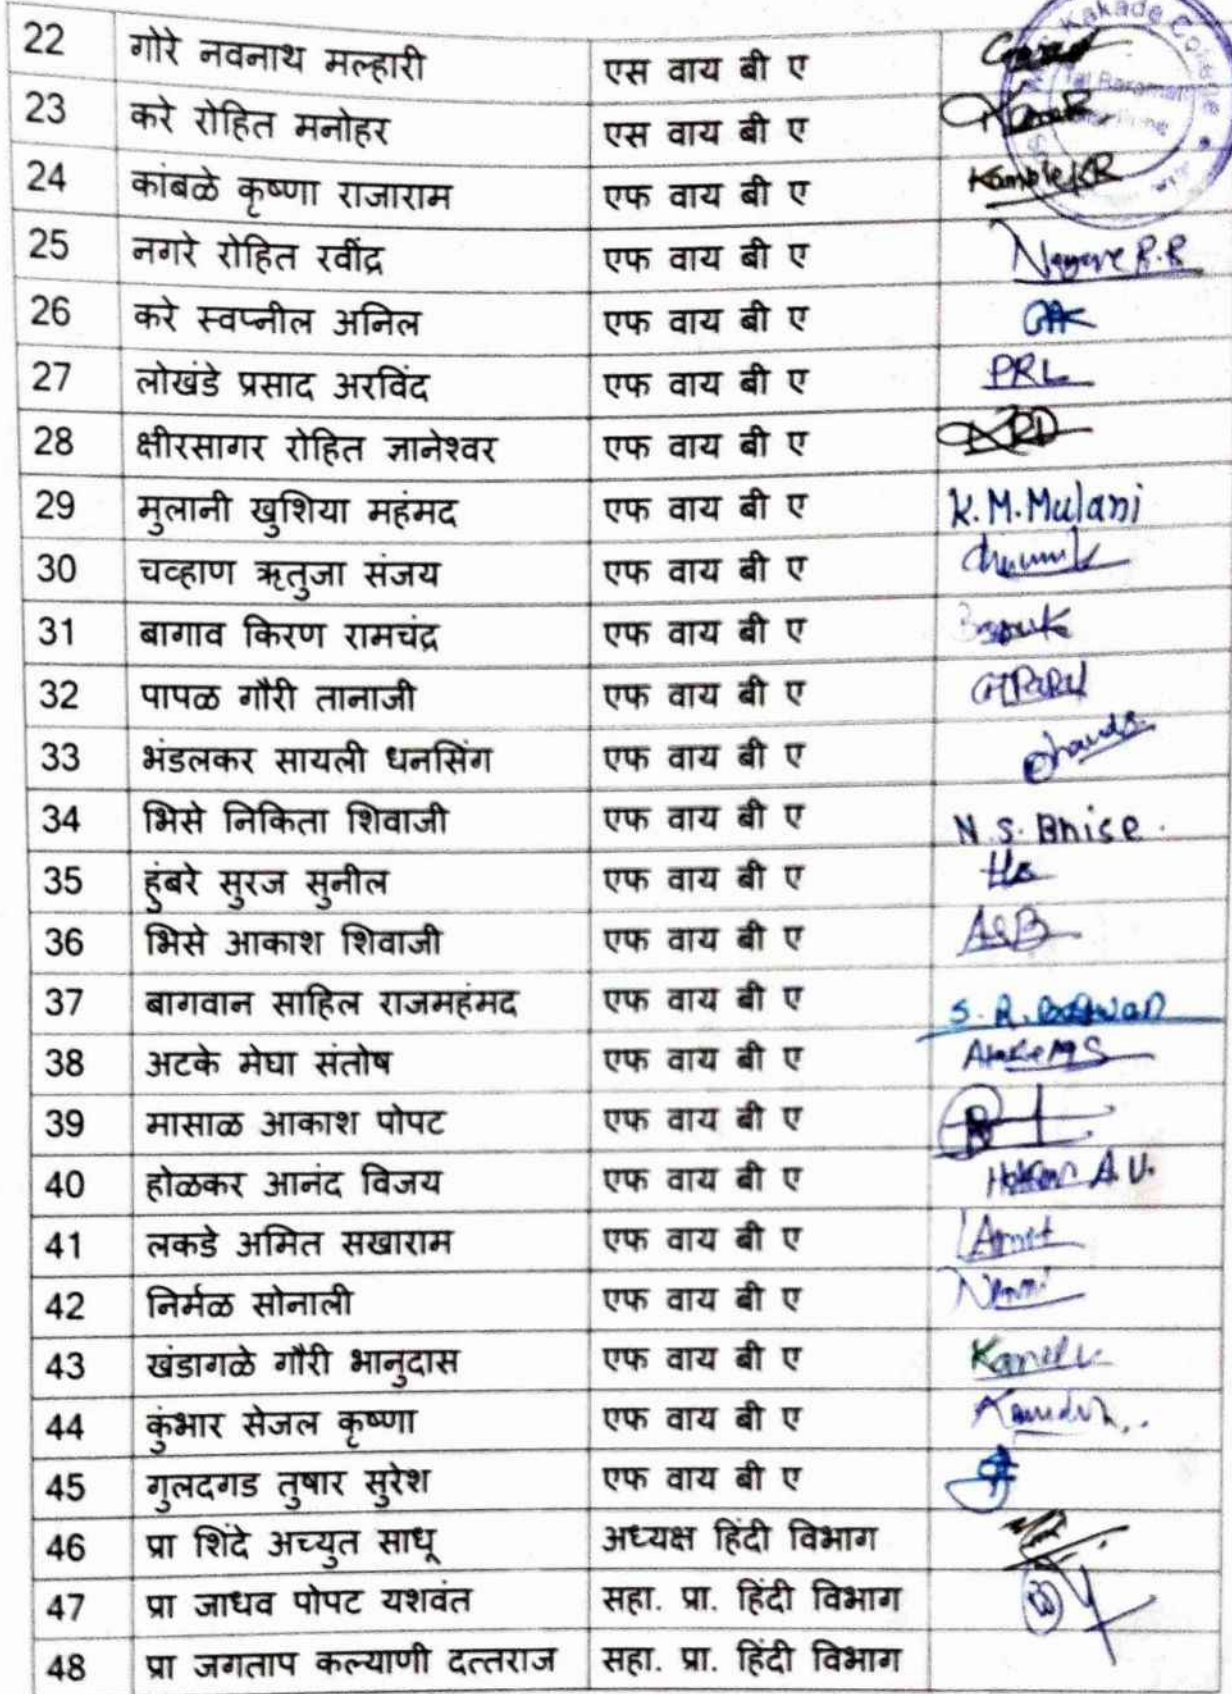 Kakade College
Tal Baramati
22 गोरे नवनाथ मल्हारी एस वाय बी ए
23 करे रोहित मनोहर एस वाय बी ए
24 कांबळे कृष्णा राजाराम एफ वाय बी ए Kamble KR
25 नगरे रोहित रवींद्र एफ वाय बी ए Nagare R.R
26 करे स्वप्नील अनिल एफ वाय बी ए
27 लोखंडे प्रसाद अरविंद एफ वाय बी ए PRL
28 क्षीरसागर रोहित ज्ञानेश्वर एफ वाय बी ए KRD
29 मुलानी खुशिया महंमद एफ वाय बी ए K.M.Mulani
30 चव्हाण ऋतुजा संजय एफ वाय बी ए
31 बागाव किरण रामचंद्र एफ वाय बी ए
32 पापळ गौरी तानाजी एफ वाय बी ए
33 भंडलकर सायली धनसिंग एफ वाय बी ए
34 भिसे निकिता शिवाजी एफ वाय बी ए N.S. Bhise.
35 हुंबरे सुरज सुनील एफ वाय बी ए
36 भिसे आकाश शिवाजी एफ वाय बी ए ASB
37 बागवान साहिल राजमहंमद एफ वाय बी ए S. R.
38 अटके मेघा संतोष एफ वाय बी ए Atake MS
39 मासाळ आकाश पोपट एफ वाय बी ए
40 होळकर आनंद विजय एफ वाय बी ए Holkar A.V.
41 लकडे अमित सखाराम एफ वाय बी ए LAmit
42 निर्मळ सोनाली एफ वाय बी ए
43 खंडागळे गौरी भानुदास एफ वाय बी ए
44 कुंभार सेजल कृष्णा एफ वाय बी ए
45 गुलदगड तुषार सुरेश एफ वाय बी ए
46 प्रा शिंदे अच्युत साधू अध्यक्ष हिंदी विभाग
47 प्रा जाधव पोपट यशवंत सहा. प्रा. हिंदी विभाग
48 प्रा जगताप कल्याणी दत्तराज सहा. प्रा. हिंदी विभाग